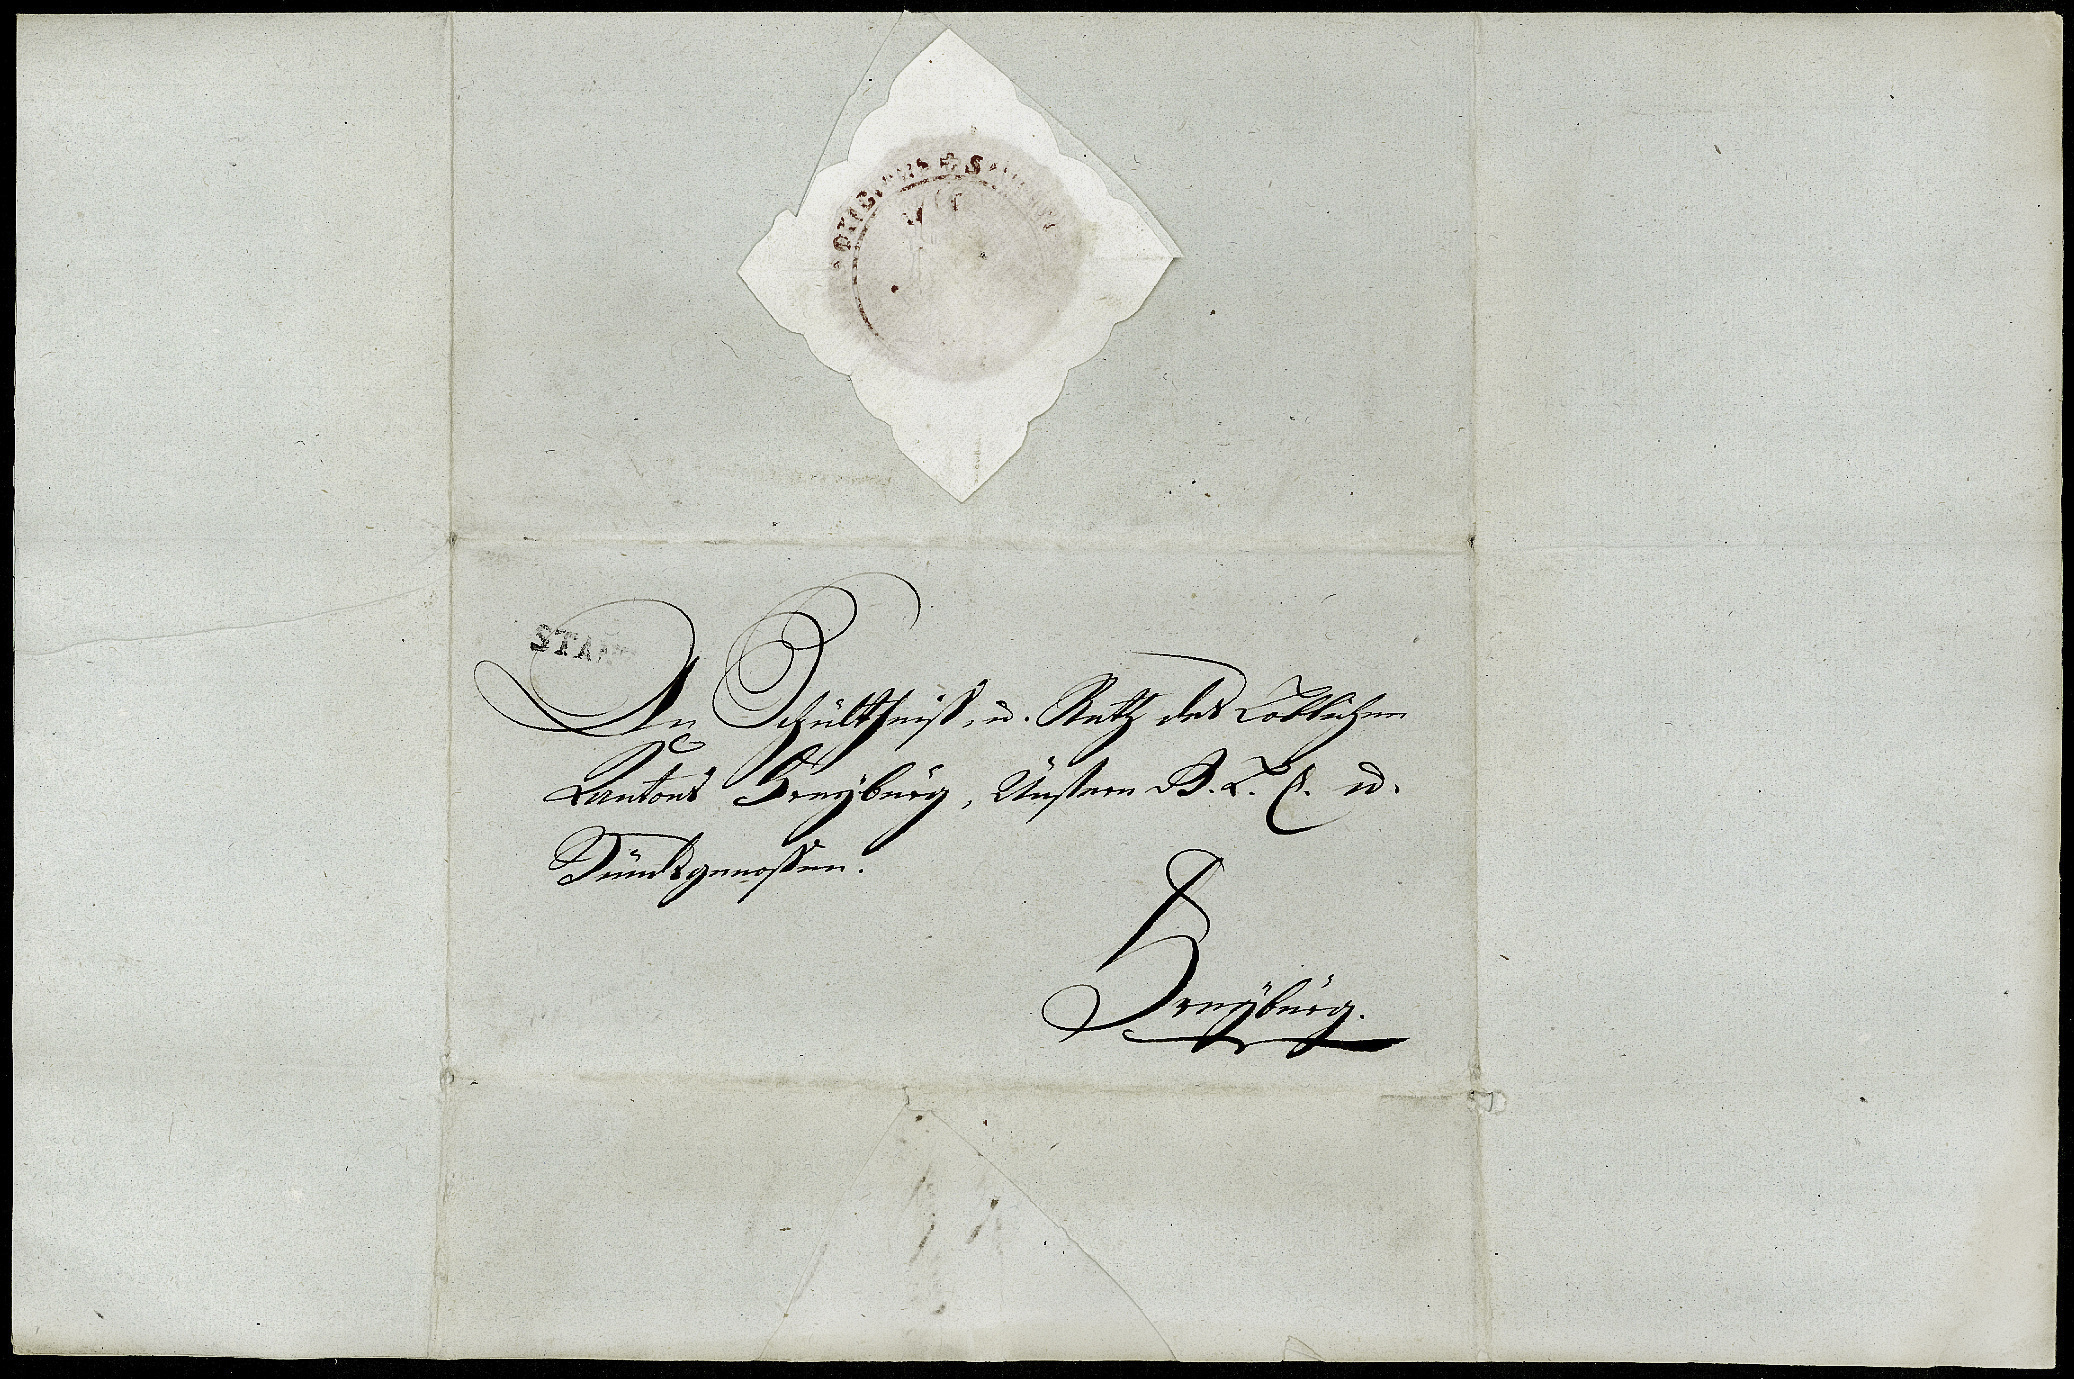 STAN
An Schultheiß, u. Rath des Loblichen
Cantons Freyburg, Unsern B. L. E. u.
Bundsgenossen.
Freyburg.